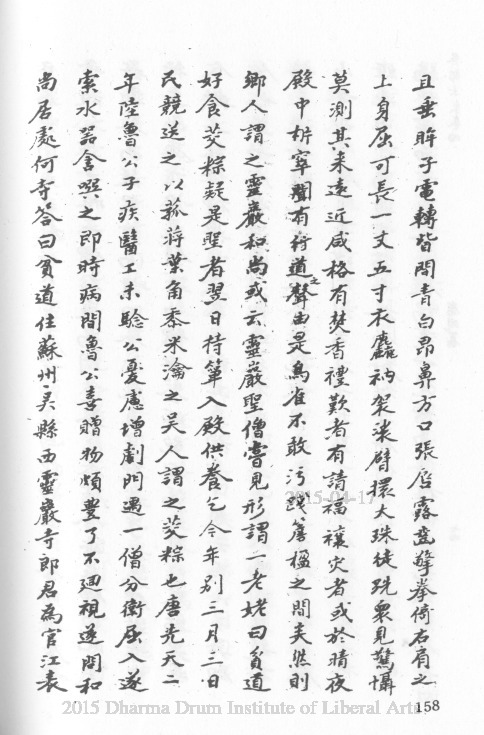 且垂眸子電轉皆間青白昂鼻方口張脣露齒擎拳倚右肩之
上身屈可長一丈五寸衣麤衲袈裟臂擐大珠徒跣衆見驚懾
莫測其来遠近咸格有焚香禮歎者有請福禳灾者或於晴夜
殿中析寂聞有行道之聲由是鳥雀不敢污踐簷楹之間矣然則
鄉人謂之靈巖和尚或云靈巖聖僧嘗見形謂一老姥曰貧道
好食茭粽疑是聖者翌日持簞入殿供養乞今年別三月三日
民競送之以菰蒋葉角黍米瀹之吴人謂之茭粽也唐先天二
年陸魯公子疾醫工未驗公憂慮增劇門遇一僧分衛屈入遂
索水器含噀之即時病間魯公喜贈物頗豐了不迴視遂問和
尚居處何寺答曰貧道住蘇州吴縣西靈巖寺郎君為官江表
158
2015-04-17
2015 Dharma Drum Institute of Liberal Arts